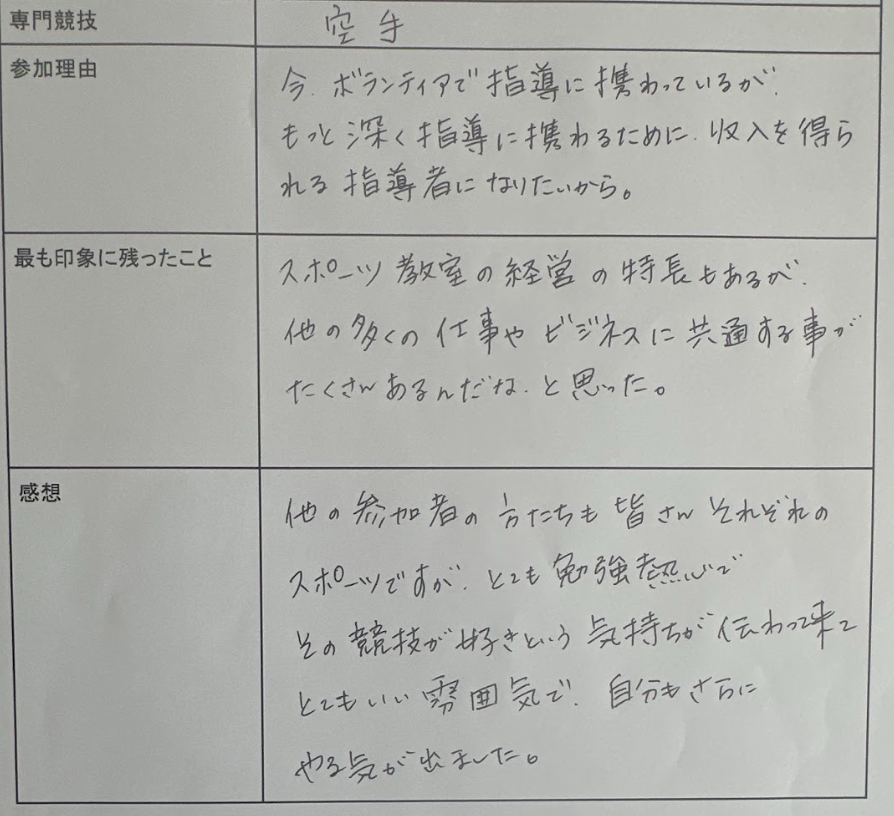 専門競技
空手
参加理由
今、ボランティアで指導に携わっているが、
もっと深く指導に携わるために、収入を得ら
れる指導者になりたいから。
最も印象に残ったこと
スポーツ教室の経営の特長もあるが、
他の多くの仕事やビジネスに共通する事が
たくさんあるんだな、と思った。
感想
他の参加者の方たちも皆さんそれぞれの
スポーツですが、とても勉強熱心で
その競技が好きという気持ちが伝わって来て
とてもいい雰囲気で、自分もさらに
やる気が出ました。